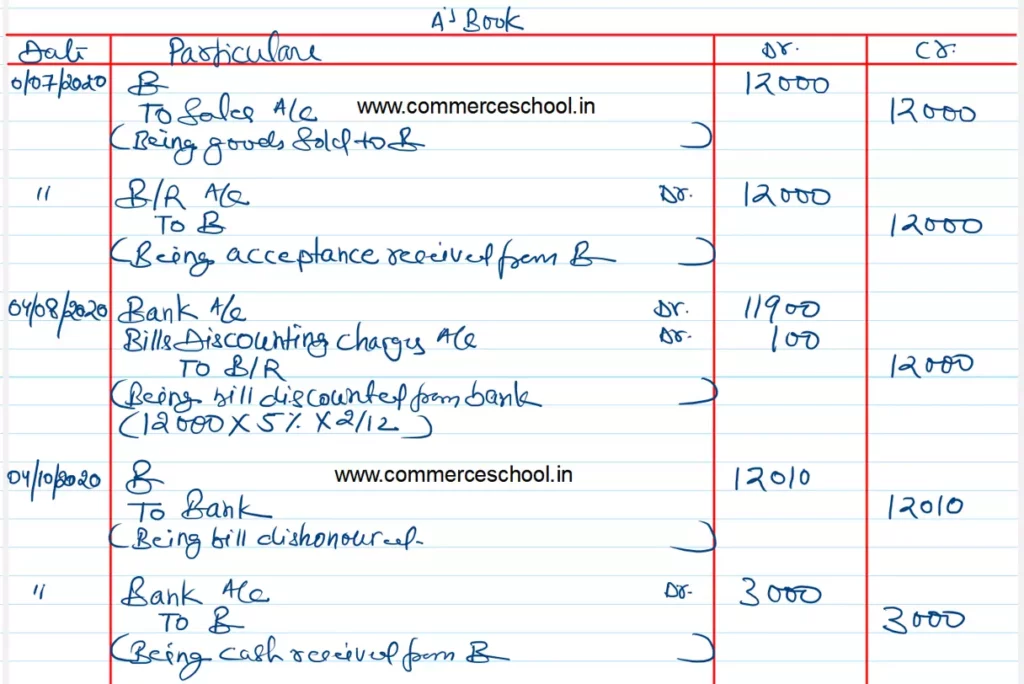 A's Book
Date Particulars Dr. Cr.
0/07/2020 B 12000
To Sales A/c www.commerceschool.in 12000
(Being goods sold to B)
" B/R A/c Dr. 12000
To B 12000
(Being acceptance received from B)
04/08/2020 Bank A/c Dr. 11900
Bills Discounting charges A/c Dr. 100
To B/R 12000
(Being bill discounted from bank)
(12000 X 5% X 2/12)
04/10/2020 B www.commerceschool.in 12010
To Bank 12010
(Being bill dishonoured)
" Bank A/c Dr. 3000
To B 3000
(Being cash received from B)